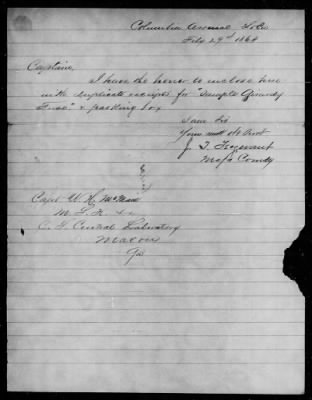 Columbia Arsenal S. Ca
Feby 29th 1864
Captain
I have the honor to inclose here
with duplicate receipts for "Sample Grenade
Fuse" & packing box
I am Sir
Your most Obt Servt
J. T. Trezevant
Maj Comdg
Capt W. H. McMain
C. S. Central Laboratory
Macon
Ga